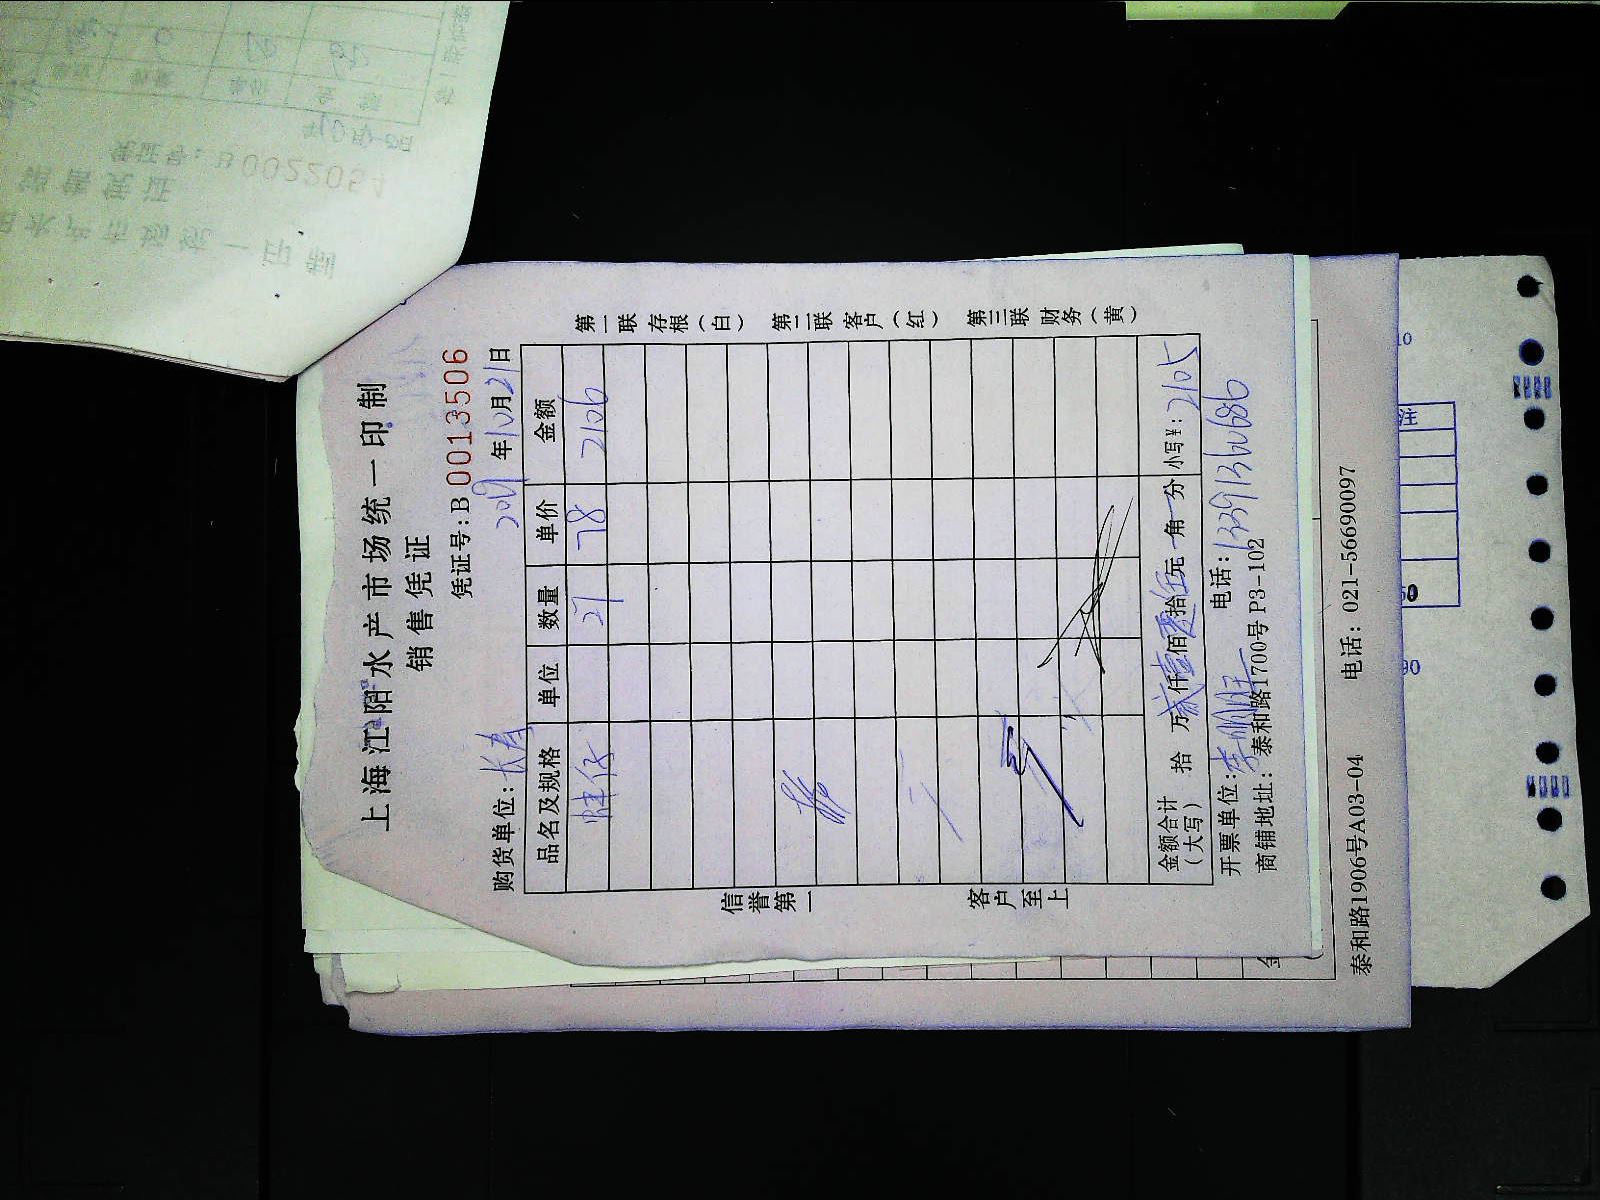 上海江阳水产市场统一印制
销售凭证
凭证号:B 0013506
2019年10月21日
购货单位:长寿
品名及规格 单位 数量 单价 金额
蚌仔 27 78 2106
金额合计(大写) 拾 万贰仟壹佰零拾伍元 角 分 小写¥:2105
开票单位: 电话:13391360686
商铺地址:泰和路1700号 P3-102
信誉第一 客户至上
第一联 存根(白) 第二联 客户(红) 第三联 财务(黄)
泰和路1906号A03-04 电话:021-56690097
凭证号:B0022051
销售凭证
水产市场统一印制